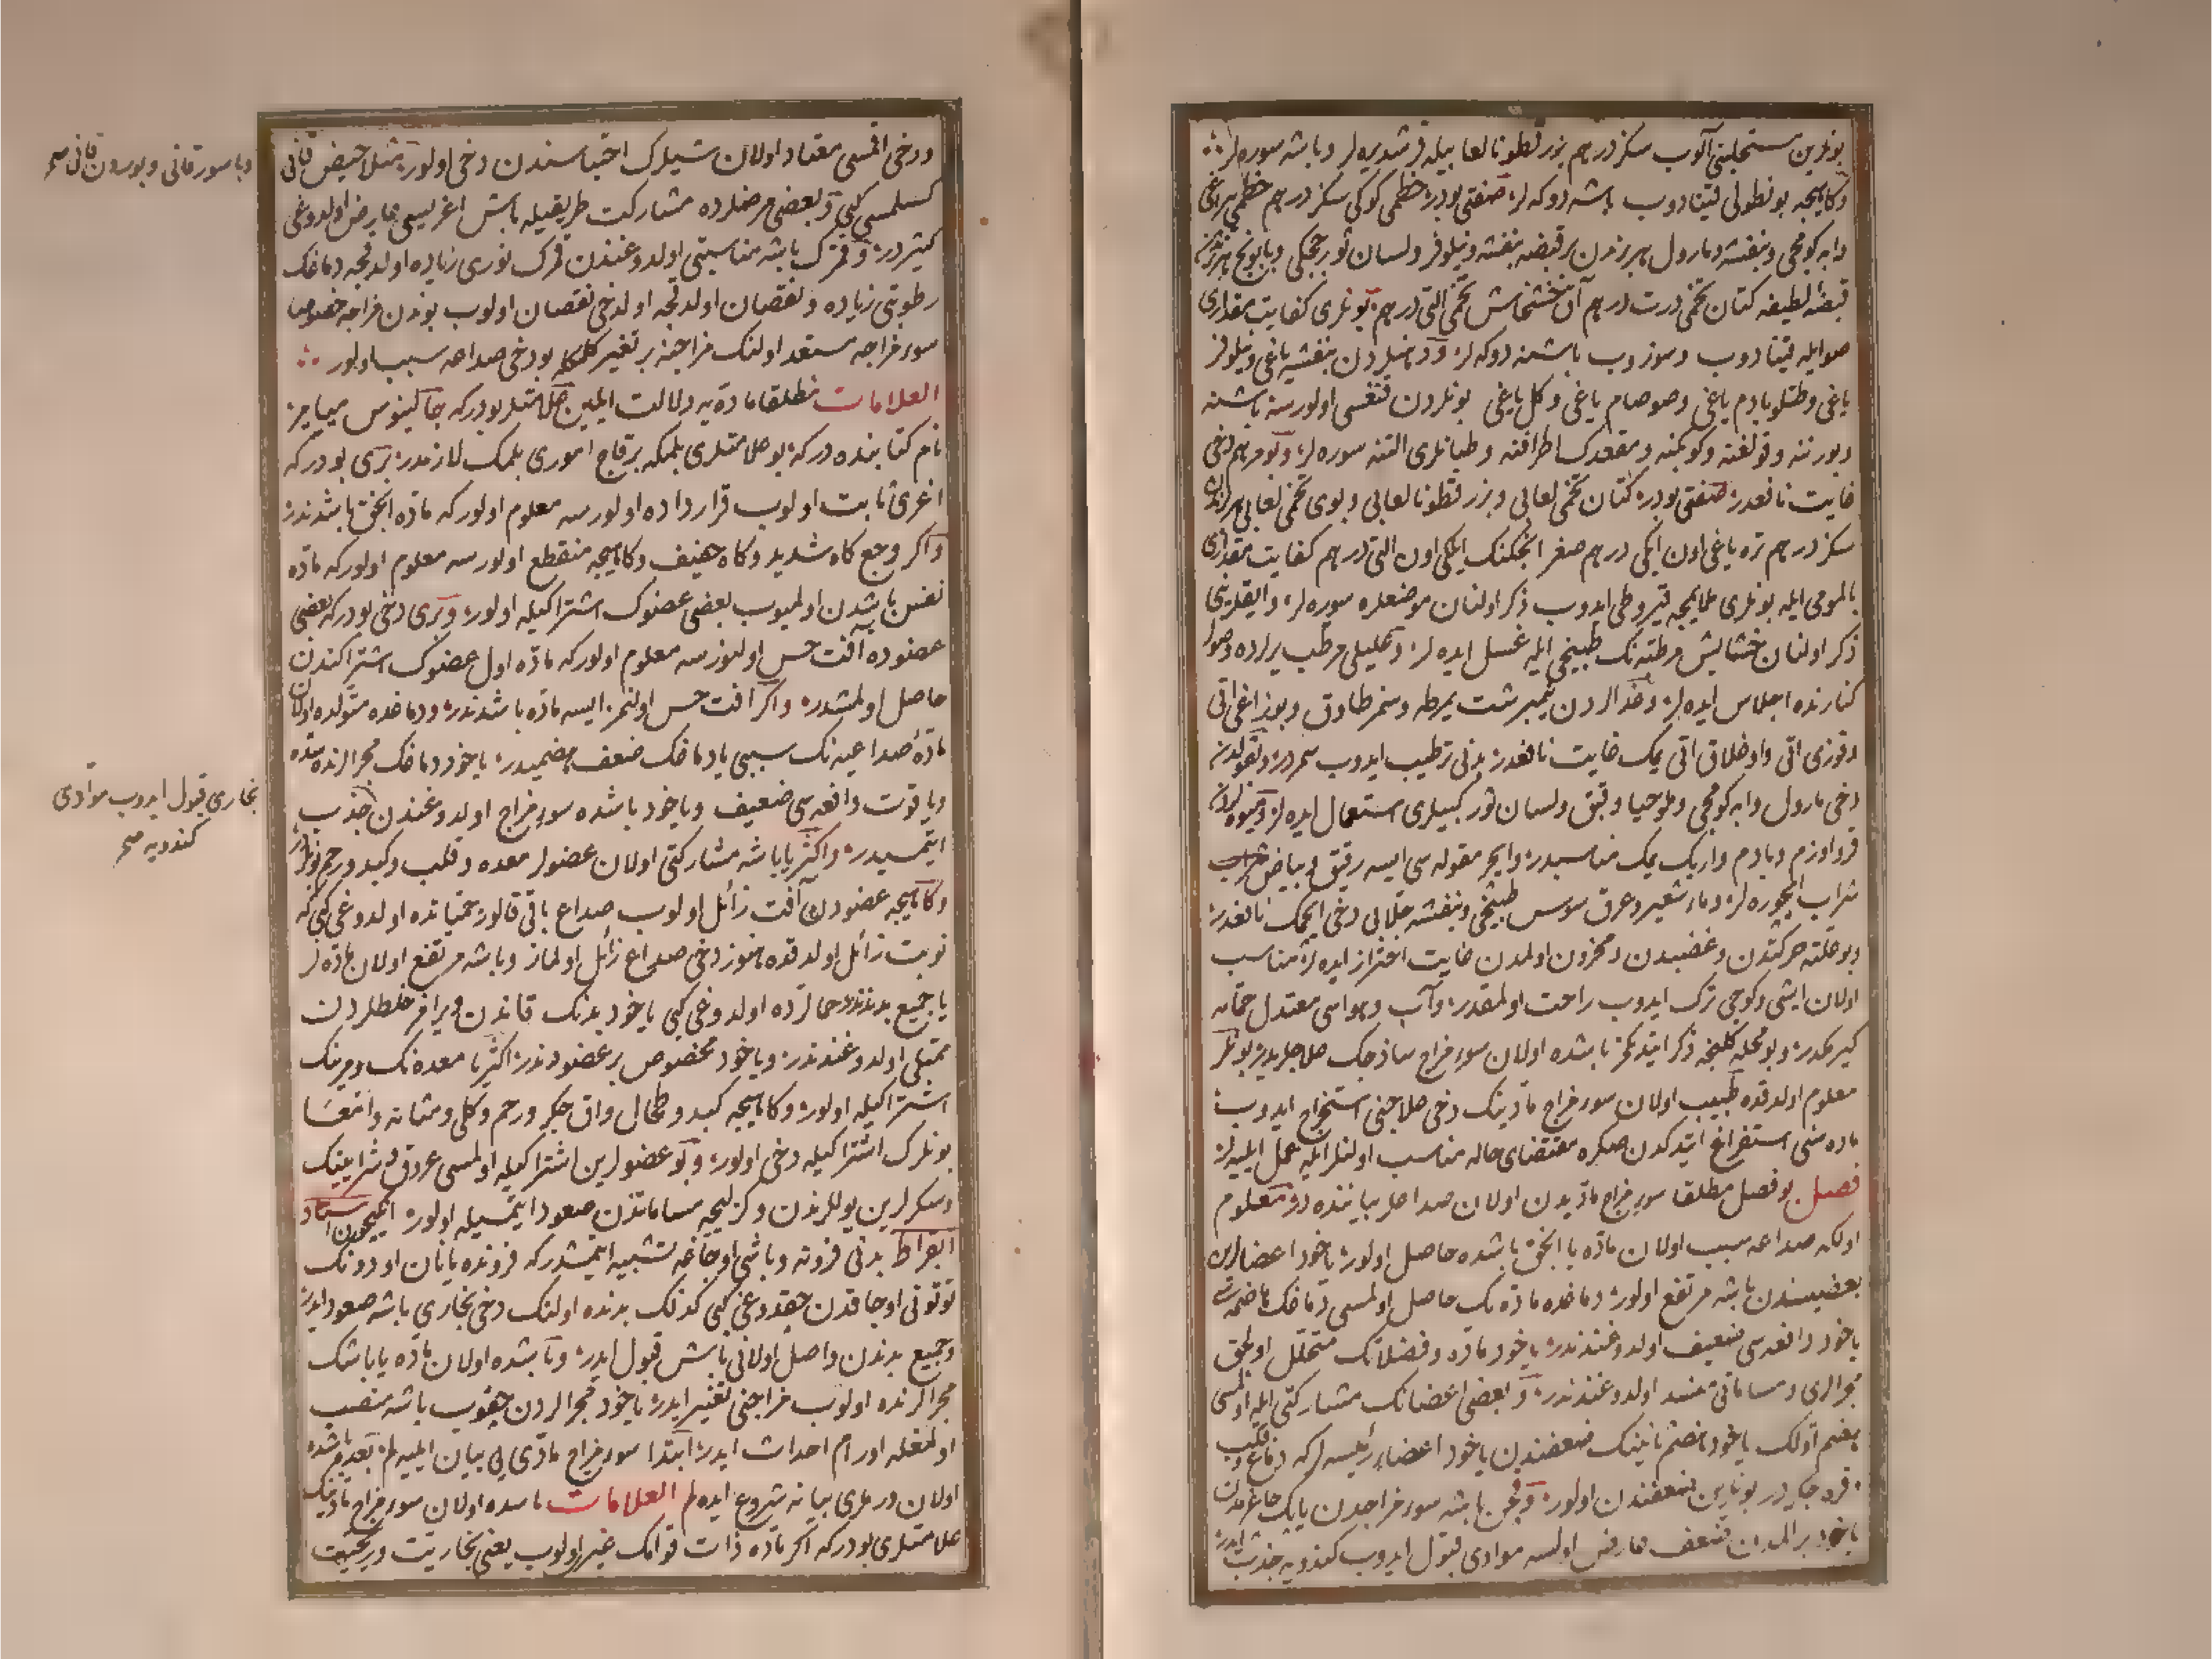 بونلرین مستحلبنی آلوب سکز درهم بزر قطونا لعابیله قرشدیره لر و باشه سوره لر
وکاهیجه بو نطولی قینادوب باشه دوکه لر صفتی بودر خطمی کوکی سکز درهم خطمی یپراغی
وابه کومجی و بنفشه و مارول هر برندن بر قبضه بنفشه و نیلوفر و لسان ثور چچکی و بابونج هر برندن
قبضۀ لطیفه کتان تخمی درت درهم آق خشخاش تخمی التی درهم بونلری کفایت مقداری
صو ایله قینادوب و سوزوب باشنه دوکه لر و دهنلردن بنفشه یاغی و نیلوفر
یاغی و طتلو بادم یاغی و صوصام یاغی و کل یاغی بونلردن قنغسی اولورسه باشنه
وبورننه و قولغنه و کوبکنه و مقعدک اطرافنه و طبانلری التنه سوره لر و بو مرهم دخی
غایت نافعدر صفتی بودر کتان تخمی لعابی و بزر قطونا لعابی و بوی تخمی لعابی هر برندن
سکز درهم تره یاغی اون ایکی درهم صغر انجکنک ایلکی اون التی درهم کفایت مقداری
بالمومی ایله بونلری ملایمجه قیروطی ایدوب ذکر اولنان موضعلره سوره لر و ایقلرینی
ذکر اولنان حشایش مرطبه نک طبیخی ایله غسل ایده لر و علیلی مرطب یرلرده و صولر
کنارنده اجلاس ایده لر و غدالردن نیمبرشت یمرطه و سمز طاوق و بوزاغی اتی
و قوزی اتی و اوغلاق اتی یمک غایت نافعدر بدنی ترطیب ایدوب سمردر و بقولدن
دخی مارول و ابه کومجی و ملوخیا و قبق و لسان ثور کبیلری استعمال ایده لر و میوه لردن
قرو اوزم و بادم و اریک یمک مناسبدر و ایچر مقوله سی ایسه رقیق و بیاض
شراب ایچوره لر و ماء شعیر و عرق سوس طبیخی و بنفشه جلابی دخی ایچمک نافعدر
و بو علته حرکتدن و غضبدن و محزون اولمدن غایت احتراز ایده لر مناسب
اولان ایشی و کوجی ترک ایدوب راحت اولمقدر و آب و هواسی معتدل حمامه
کیرمکدر و بو محله کلنجه ذکر ایتدکمز باشده اولان سوء مزاج ساذجک علاجلریدر بونلر
معلوم اولدقده طبیب اولان سوء مزاج مادینک دخی علاجنی استخراج ایدوب
ماده سنی استفراغ ایتدکدن صکره مقتضای حاله مناسب اولنلر ایله عمل ایلیه لر
فصل بو فصل مطلقا سوء مزاج مادیدن اولان صداعلر بیاننده در معلوم
اولکه صداعه سبب اولان ماده یا انجق باشده حاصل اولور یاخود اعضالرن
بعضیسندن باشه مرتفع اولور دماغده ماده نک حاصل اولمسی دماغک هاضمه سی
یاخود دافعه سی ضعیف اولدوغندندر یاخود ماده و فضلاتک متحلل اولجق
مجرالری و مساماتی منسد اولدوغندندر و بعضی اعضانک مشارکتی ایله اولمسی
هضم اولک یاخود هضم ثانینک ضعفندن یاخود اعضاء رئیسه لر که دماغ و قلب
و قره جکردر بونلرین ضعفندن اولور
یاخود بر المدن ضعف عارض اولسه موادی قبول ایدوب کندویه جذب ایدر
و دخی اقمسی معتاد اولان شیلرک احتباسندن دخی اولور مثلا حیض قانی
و باسور قانی و بورون قانی صح
کسلمسی کبی و بعضی مرضلرده مشارکت طریقیله باش اغریسی عارض اولدوغی
کثیردر و قمرک باشه مناسبتی اولدوغندن قمرک نوری زیاده اولدقجه دماغک
رطوبتی زیاده و نقصان اولدقجه اولدخی نقصان اولوب بوندن مزاجه خصوصا
سوء مزاجه مستعد اولنک مزاجنه بر تغیر کلمکله بودخی صداعه سبب اولور
العلامات مطلقا ماده یه دلالت ایلین علامتلر بودر که جالینوس میامیر
نام کتابنده در که بو علامتلری بلمکه برقاج اموری بلمک لازمدر بری بودر که
اغری ثابت اولوب قرارداده اولورسه معلوم اولور که ماده انجق باشدندر
و اکر وجع کاه شدید و کاه خفیف و کاهیجه منقطع اولورسه معلوم اولور که ماده
نفس باشدن اولمیوب بعضی عضوک اشتراکیله اولور و بری دخی بودر که بعضی
عضوده آفت حس اولنورسه معلوم اولور که ماده اول عضوک اشتراکندن
حاصل اولمشدر و اکر افت حس اولنمز ایسه ماده باشدندر و دماغده متولده اولان
ماده صداعیه نک سببی یا دماغک ضعف هضمیدر یاخود دماغک مجرالرنده سده
و یا قوت دافعه سی ضعیف و یاخود باشده سوء مزاج اولدوغندن جذب
بخاری قبول ایدوب موادی
کندویه صح
ایتمسیدر و اکثریا باشه مشارکتی اولان عضولر معده و قلب و کبد و رحم بونلردر
وکاهیجه عضودن آفت زائل اولوب صداع باقی قالور حمیاتده اولدوغی کبی که
نوبت زائل اولدقده هنوز دخی صداع زائل اولماز و باشه مرتفع اولان ماده لر
یا جمیع بدندندر حمالرده اولدوغی کبی یاخود بدنک قاندن و یرامز خلطلردن
ممتلی اولدوغندندر و یاخود مخصوص بر عضودندر اکثریا معده نک و مرینک
اشتراکیله اولور و کاهیجه کبد و طحال و اق جکر و رحم و کلی و مثانه و امعا
بونلرک اشتراکیله دخی اولور و بو عضولرین اشتراکیله اولمسی عروق و شرایینک
و سکرلرین یوللرندن و کزلیجه مساماتدن صعود ایتمسیله اولور انیجون استاد
ابقراط بدنی فرونه و باشی اوجاغه تشبیه ایتمشدر که فرونده یانان اودونک
توتونی اوجاقدن چقدوغی کبی کذلک بدنده اولنک دخی بخاری باشه صعود ایدر
و جمیع بدندن واصل اولانی باش قبول ایدر و باشده اولان ماده یا باشک
مجرالرنده اولوب مزاجنی تغییر ایدر یاخود مجرالردن چقوب باشه منصب
اولمغله اورام احداث ایدر ابتدا سوء مزاج مادی یی بیان ایلیه لم بعده باشده
اولان ورملری بیانه شروع ایده لم العلامات باشده اولان سوء مزاج مادینک
علامتلری بودر که اکر ماده ذات قوامک غیر اولوب یعنی بخاریت و ریحیت